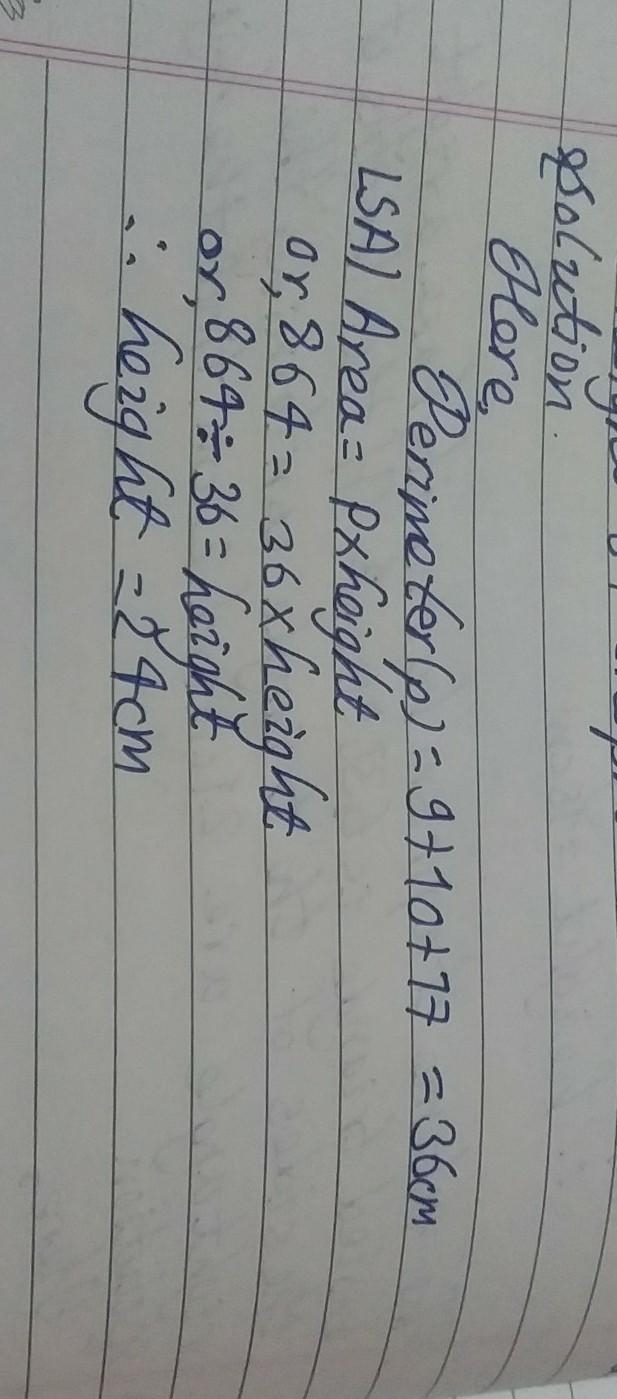 Solution.
Here,
Perimeter(p) = 9+10+17 = 36cm
LSA) Area = P×height
or, 864 = 36×height
or, 864÷36 = height
∴ height = 24cm